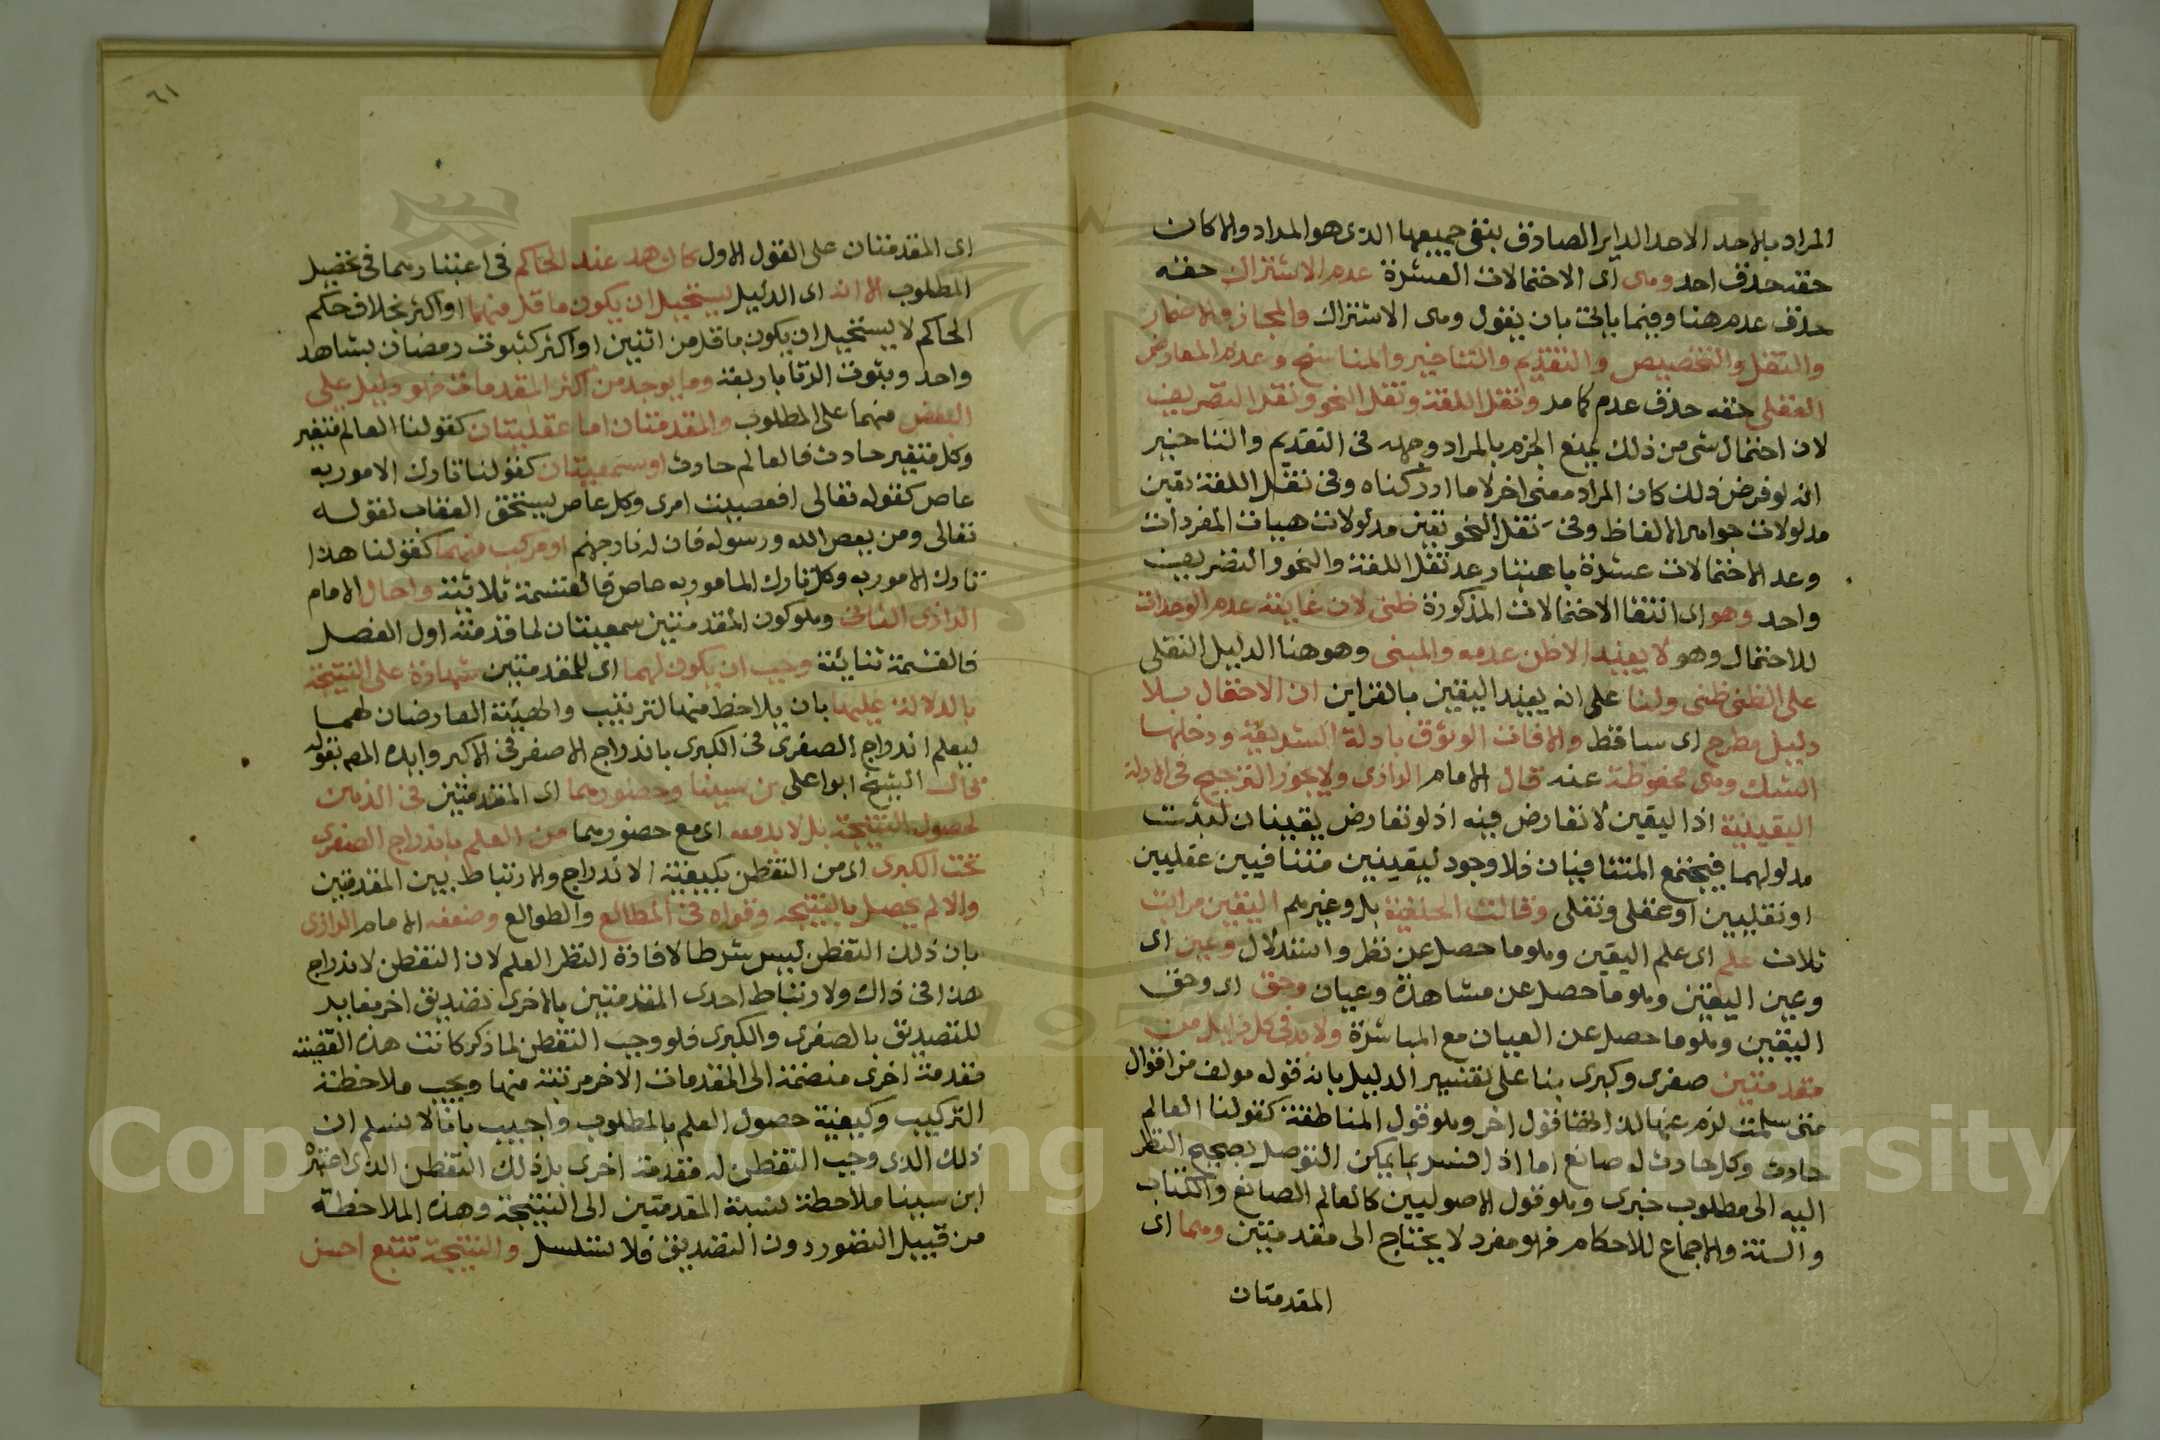 المراد بالاحد الاحد الداير الصادق بنفى جميعها الذى هو المراد والا كان
حقه حذف احد وهى اى الاحتمالات العشرة عدم الاشتراك حقه
حذف عدم هنا وفيما ياتى بان يقول وهى الاشتراك والمجاز والاضمار
والنقل والتخصيص والتقديم والتاخير والناسخ وعدم المعارض
العقلى حقه حذف عدم كما مر ونقل اللغة ونقل النحو ونقل التصريف
لان احتمال شى من ذلك يمنع الجزم بالمراد وجهه فى التقديم والتاخير
انه لو فرض ذلك كان المراد معنى اخر لا ما ادركناه وفى نقل اللغة تعين
مدلولات جواهر الالفاظ وفى نقل النحو تعين مدلولات هيات المفردات
وعد الاحتمالات عشرة باعتبار عد نقل اللغة والنحو والتصريف
واحد وهو اى انتفا الاحتمالات المذكورة ظنى لان غايته عدم الوجدان
للاحتمال وهو لا يفيد الا ظن عدمه والمبنى وهو هنا الدليل النقلى
على الظنى ظنى ولنا على انه يفيد اليقين بالقراين ان الاحتمال بلا
دليل مطرح اى ساقط والا فات الوثوق بادلة الشريعة ودخلها
الشك وهى محفوظة عنه قال الامام الرازى ولا يجوز الترجيح فى الادلة
اليقينية اذ اليقين لا تعارض فيه اذ لو تعارض يقينان لثبت
مدلولهما فيجتمع المتنافيان فلا وجود ليقينين متنافيين عقليين
او نقليين او عقلى ونقلى وقالت الحنفية بل وغيرهم اليقين مراتب
ثلاث علم اى علم اليقين وهو ما حصل عن نظر واستدلال وعين اى
وعين اليقين وهو ما حصل عن مشاهدة وعيان وحق اى وحق
اليقين وهو ما حصل عن العيان مع المباشرة ولا بد فى كل دليل من
مقدمتين صغرى وكبرى بنا على تفسير الدليل بانه قول مولف من اقوال
متى سلمت لزم عنها لذاتها قول اخر وهو قول المناطقة كقولنا العالم
حادث وكل حادث له صانع اما اذا فسر بما يمكن التوصل بصحيح النظر
اليه الى مطلوب خبرى وهو قول الاصوليين كالعالم للصانع والكتاب
والسنة والاجماع للاحكام فهو مفرد لا يحتاج الى مقدمتين وهما اى
المقدمتان
٦١
اى المقدمتان على القول الاول كالشاهد عند الحاكم فى اعتبارهما فى تحصيل
المطلوب الا انه اى الدليل يستحيل ان يكون ما قل منهما او اكثر بخلاف حكم
الحاكم لا يستحيل ان يكون ما قل من اثنين او اكثر كثبوت رمضان بشاهد
واحد وبثوت الزنا باربعة وما يوجد من اكثر المقدمات فهو دليل على
البعض منهما على المطلوب والمقدمتان اما عقليتان كقولنا العالم متغير
وكل متغير حادث فالعالم حادث او سمعيتان كقولنا تارك الامور به
عاص كقوله تعالى افعصيت امرى وكل عاص يستحق العقاب لقوله
تعالى ومن يعص الله ورسوله فان له نار جهنم او مركب منهما كقولنا هذا
تارك الامور به وكل تارك المامور به عاص فالقسمة ثلاثية واحال الامام
الرازى الثانى وهو كون المقدمتين سمعيتان لما قدمته اول الفصل
فالقسمة ثنائية وجب ان يكون لهما اى للمقدمتين شهادة على النتيجة
بالدلالة عليها بان يلاحظ منها الترتيب والهيئة العارضان لهما
ليعلم اندراج الصغرى فى الكبرى باندراج الاصغر فى الاكبر وايده المص بقوله
قال الشيخ ابوا على بن سينا وحضورهما اى المقدمتين فى الذهن
لحصول النتيجة بل لا بد معه اى مع حضورهما من العلم باندراج الصغرى
تحت الكبرى اى من التفطن بكيفية الاندراج والارتباط بين المقدمتين
والا لم يحصل بالنتيجة وقواه فى المطالع والطوالع وضعفه الامام الرازى
بان ذلك التفطن ليس شرطا لافادة النظر العلم لان التفطن لاندراج
هذا فى ذاك ولارتباط احدى المقدمتين بالاخرى تصديق اخر مغاير
للتصديق بالصغرى والكبرى فلو وجب التفطن لما ذكر كانت هذه القضية
مقدمة اخرى منضمة الى المقدمات الاخر مرتبة منها ويجب ملاحظة
التركيب وكيفية حصول العلم بالمطلوب واجيب بانا لا نسلم ان
ذلك الذى وجب التفطن له مقدمة اخرى بل ذلك التفطن الذى اعتبره
ابن سينا ملاحظة لنسبة المقدمتين الى النتيجة وهذه الملاحظة
من قبيل التصور دون التصديق فلا تسلسل والنتيجة تتبع احسن
Copyright © King Saud University